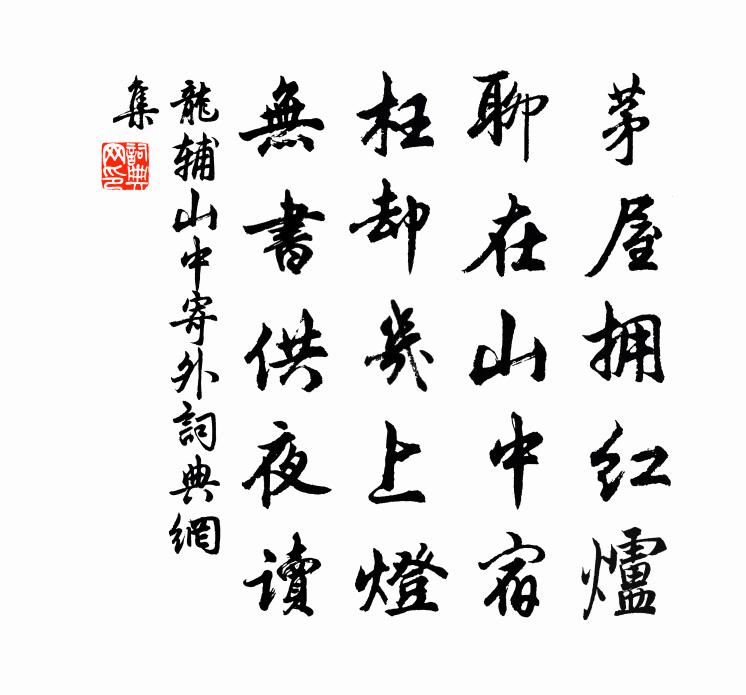 茅屋拥红爐
聊在山中宿
枉却幾上燈
無書供夜读
龍辅山中寄外詞典網
集
詞典
网印